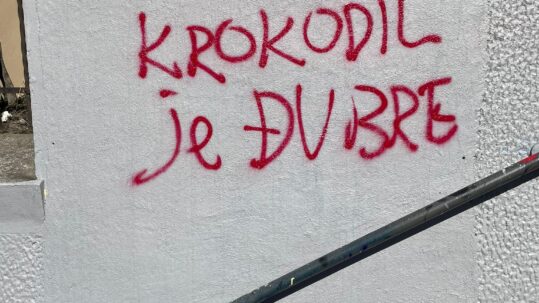 KROKODIL
je ĐUBRE